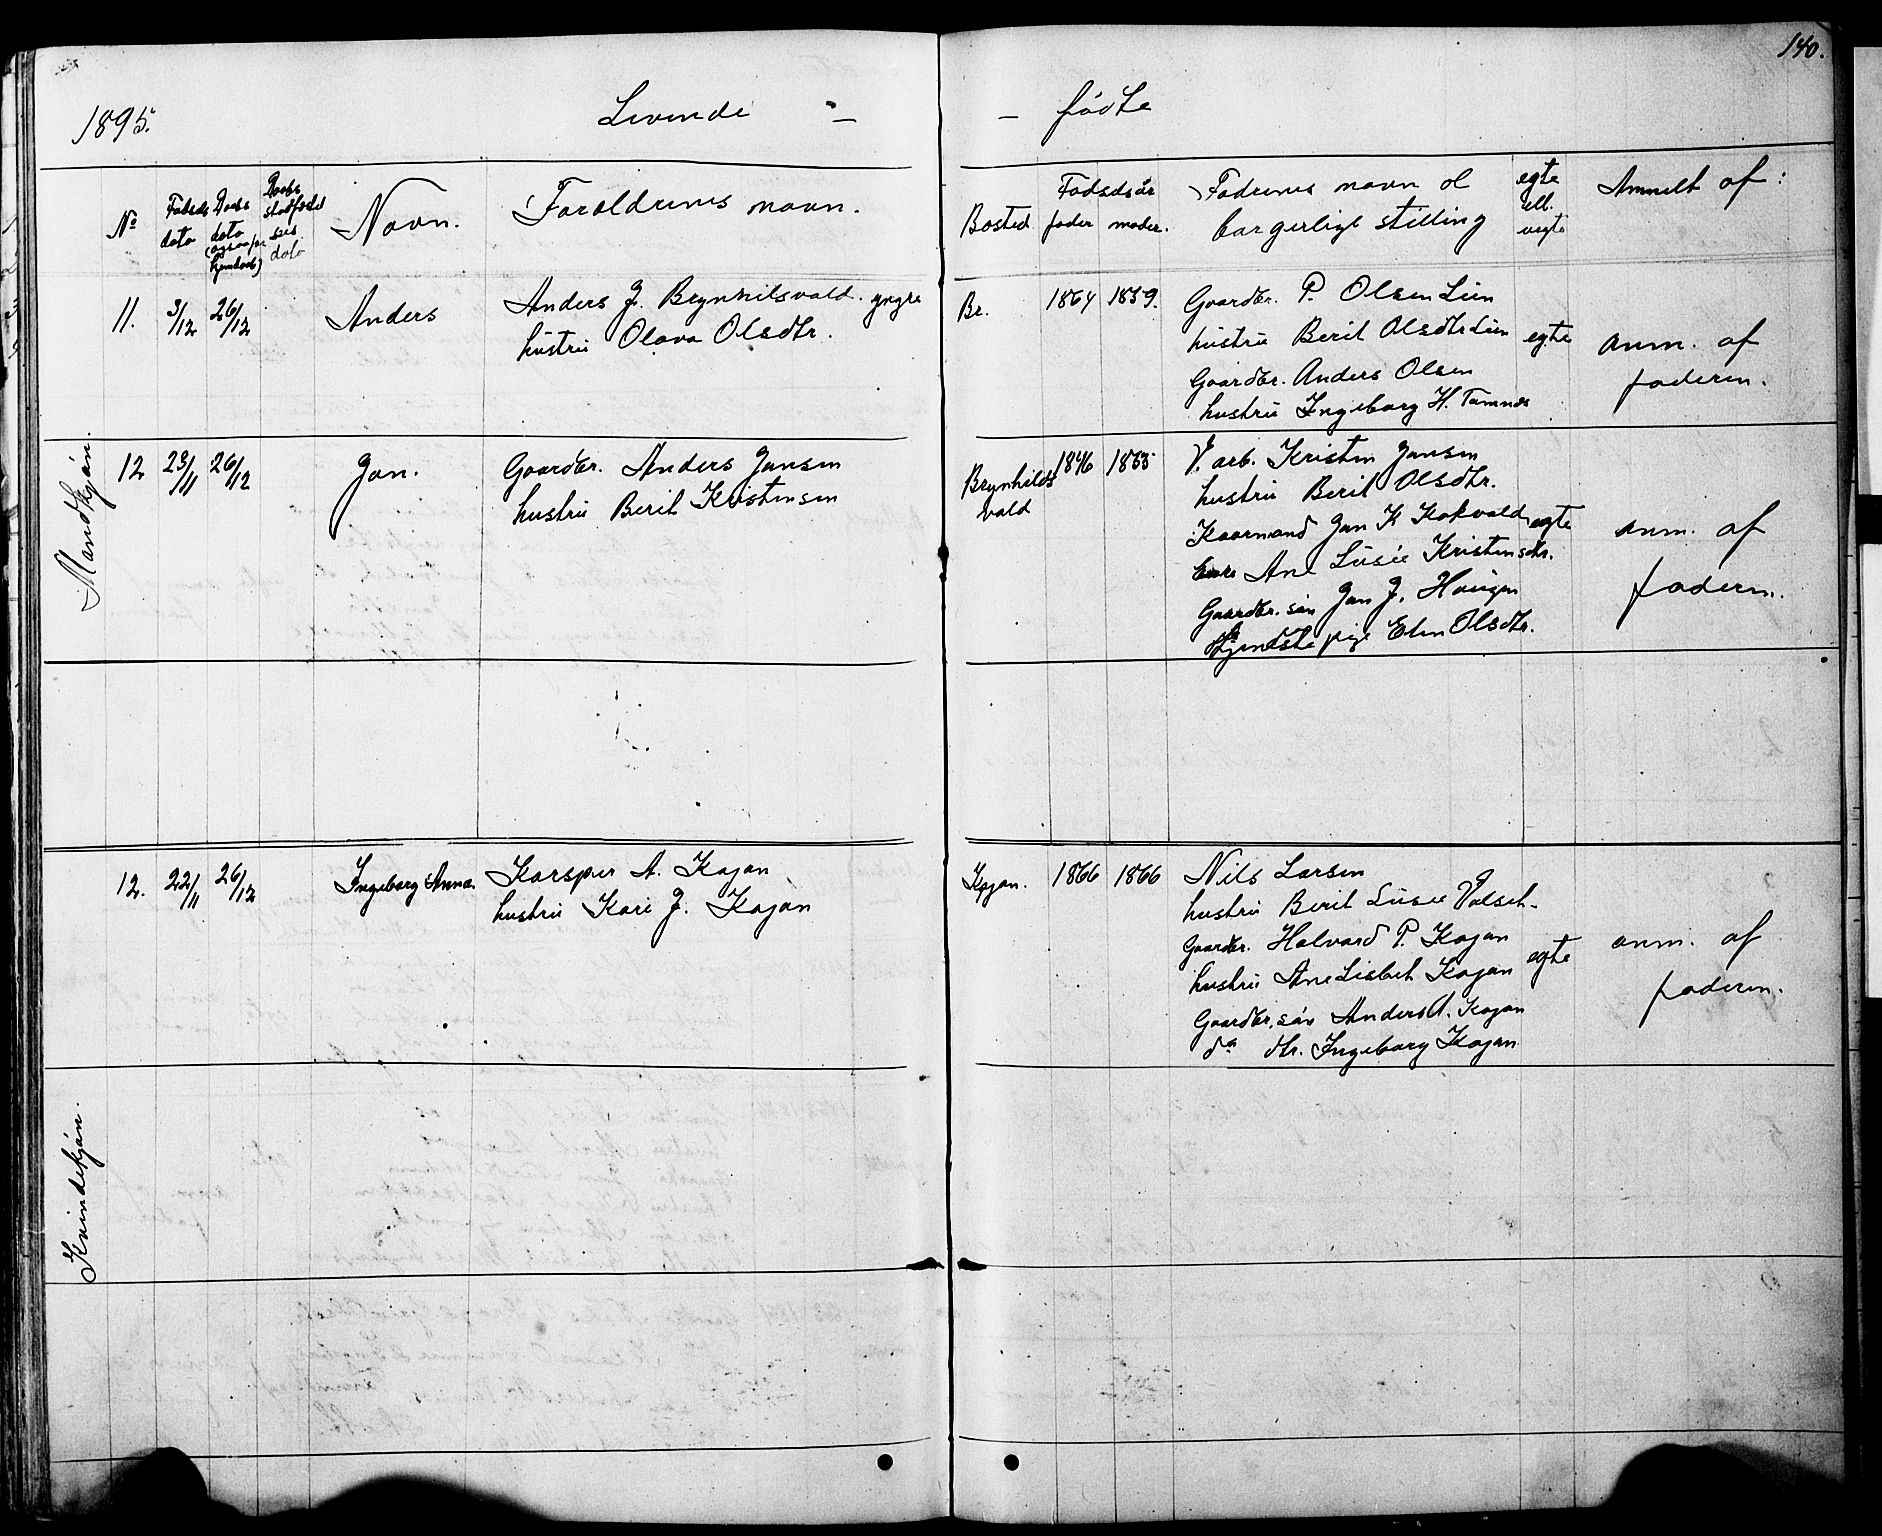 140.
1895.
Levende - - fødte
No
Fødsels dato
Daabs dato
(ogsaa for hjemdaab)
Daabs stadfæstelses dato
Navn.
Foreldrenes navn.
Bosted
Fødselsår
fader moder.
Fadrenes navn o
borgerlige stilling
egte
ell.
uegte
Anmelt af:
Mandkjøn.
11. 3/12 26/12 Anders
Anders J. Brynhilsvold. yngre
hustru Olava Olsdtr.
Br. 1864 1859.
Gaardbr. P. Olsen Lien
hustru Berit Olsdtr Lien
Gaardbr. Anders Olsen
hustru Ingeborg H. Tamnes
egte
anm. af
faderen.
12 23/11 26/12 Jon.
Gaardbr. Anders Jensen
hustru Berit Kristensen
Brynhilds
vold
1846 1855
V. arb. Kristen Jensen
hustru Berit Olsdtr.
Kaarmand Jon K Kokvold
Enke Ane Lusie Kristensdtr.
Gaardbr. søn Jon J. Haugen
Tjeneste pige Elen Olsdtr.
egte
anm. af
faderen.
12. 22/11 26/12 Ingeborg Anna.
Kasper A. Kojan
hustru Kari J. Kojan
Kojan. 1866 1866
Nils Larsen
hustru Berit Lusie Valset.
Gaardbr. Halvard P. Kojan
hustru Ane Lisbet Kojan
Gaardbr. søn Anders A. Kojan
do dtr. Ingeborg Kojan
egte
anm. af
faderen.
Kvindekjøn.